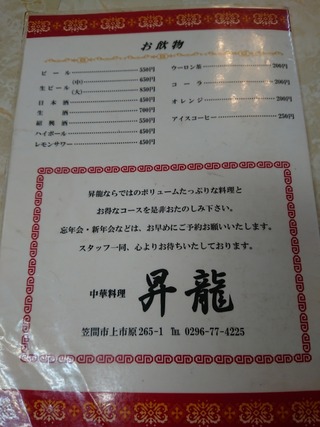 お飲物
ビール 550円
生ビール (中) 450円
(大) 850円
日本酒 450円
生酒 700円
紹興酒 550円
ハイボール 450円
レモンサワー 450円
ウーロン茶 200円
コーラ 200円
オレンジ 200円
アイスコーヒー 250円
昇龍ならではのボリュームたっぷりな料理と
お得なコースを是非おたのしみ下さい。
忘年会・新年会などは、お早めにご予約お願いいたします。
スタッフ一同、心よりお待ちいたしております。
中華料理 昇龍
笠間市上市原265-1 ℡ 0296-77-4225